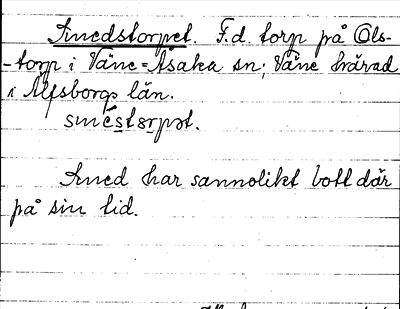 Smedstorpet. F.d. torp på Ols-
-torp i Väne-Åsaka sn; Väne härad
i Älfsborgs län.
sméstorpət.
Smed har sannolikt bott där
på sin tid.